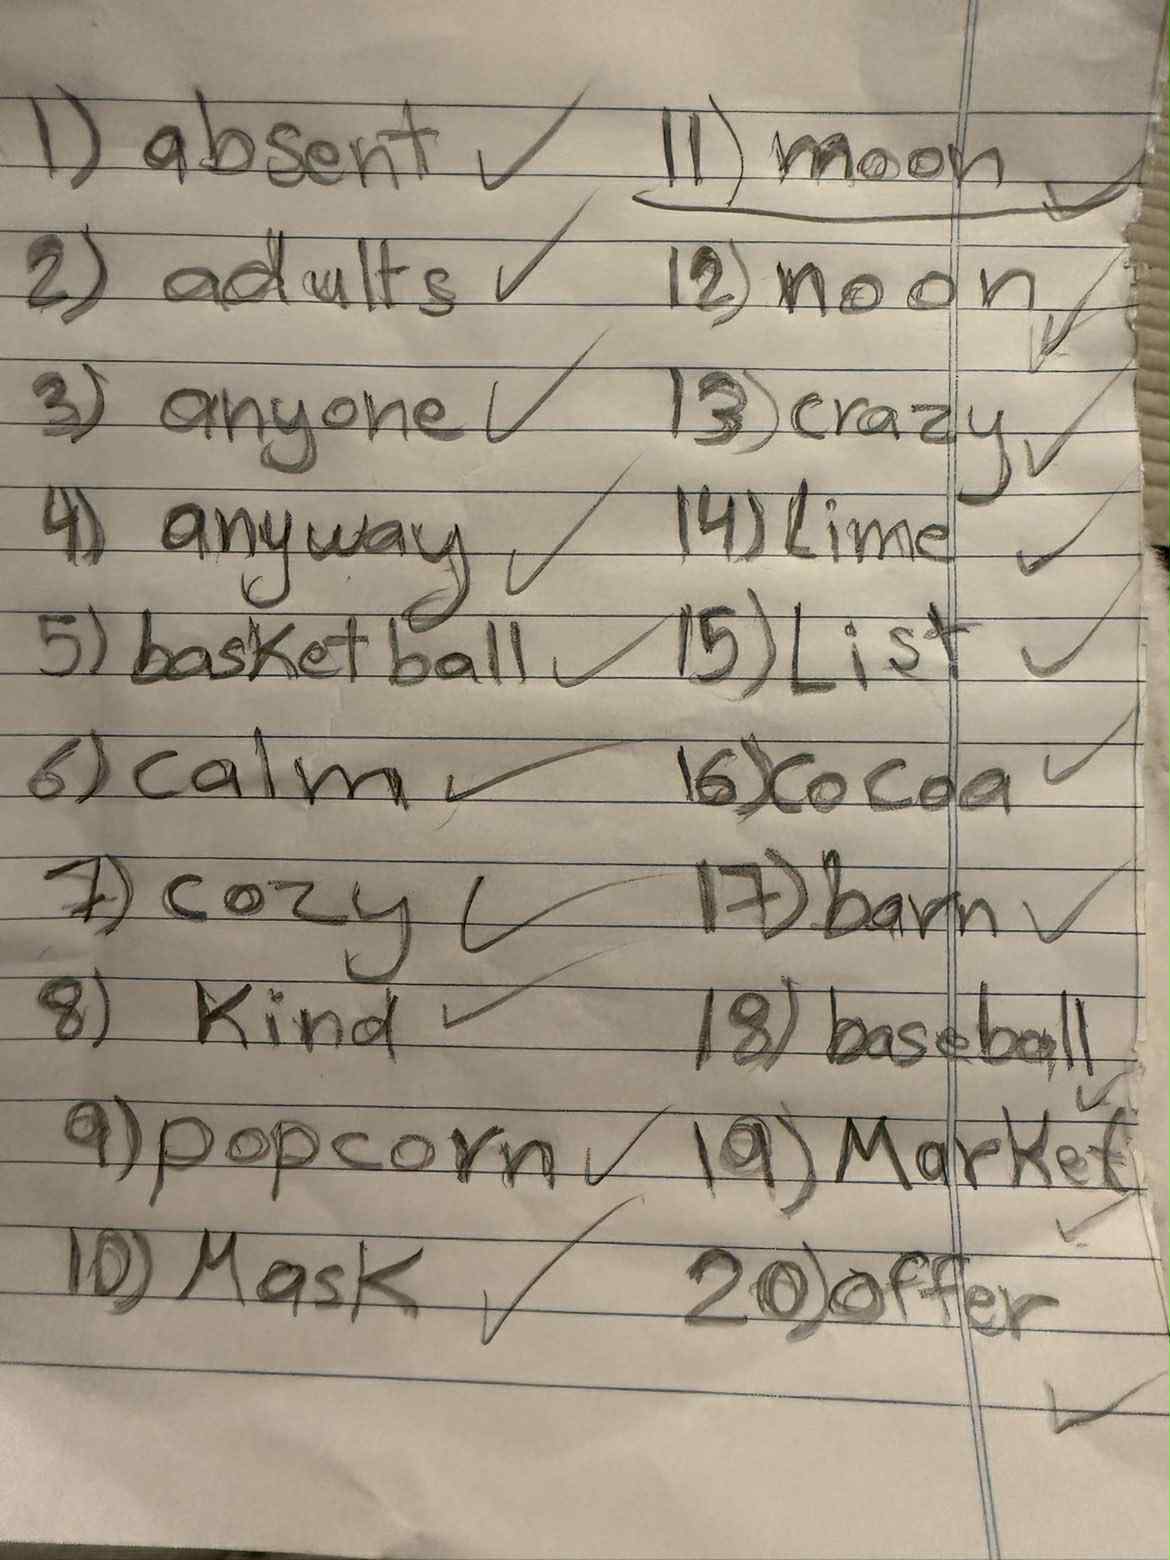 1) absent ✓
2) adults ✓
3) anyone ✓
4) anyway ✓
5) basketball ✓
6) calm ✓
7) cozy ✓
8) Kind ✓
9) popcorn ✓
10) Mask ✓
11) moon ✓
12) noon ✓
13) crazy ✓
14) Lime ✓
15) List ✓
16) Cocoa ✓
17) barn ✓
18) baseball ✓
19) Market ✓
20) offer ✓